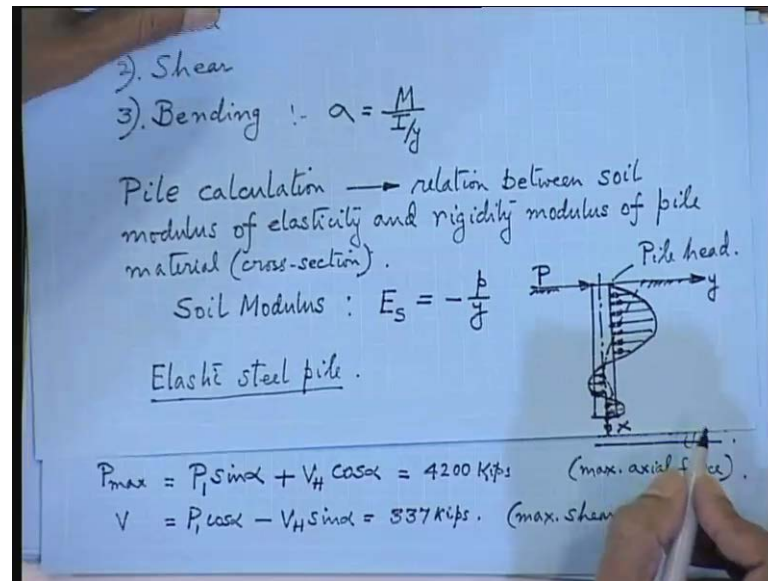 2). Shear
3). Bending :- a = M / I/y
Pile calculation → relation between soil
modulus of elasticity and rigidity modulus of pile
material (cross-section).
Pile head.
P
y
Soil Modulus : E_S = - p/y
Elastic steel pile.
x
P_max = P_1 sinα + V_H cosα = 4200 Kips (max. axial force).
V = P_1 cosα - V_H sinα = 337 Kips. (max. shear